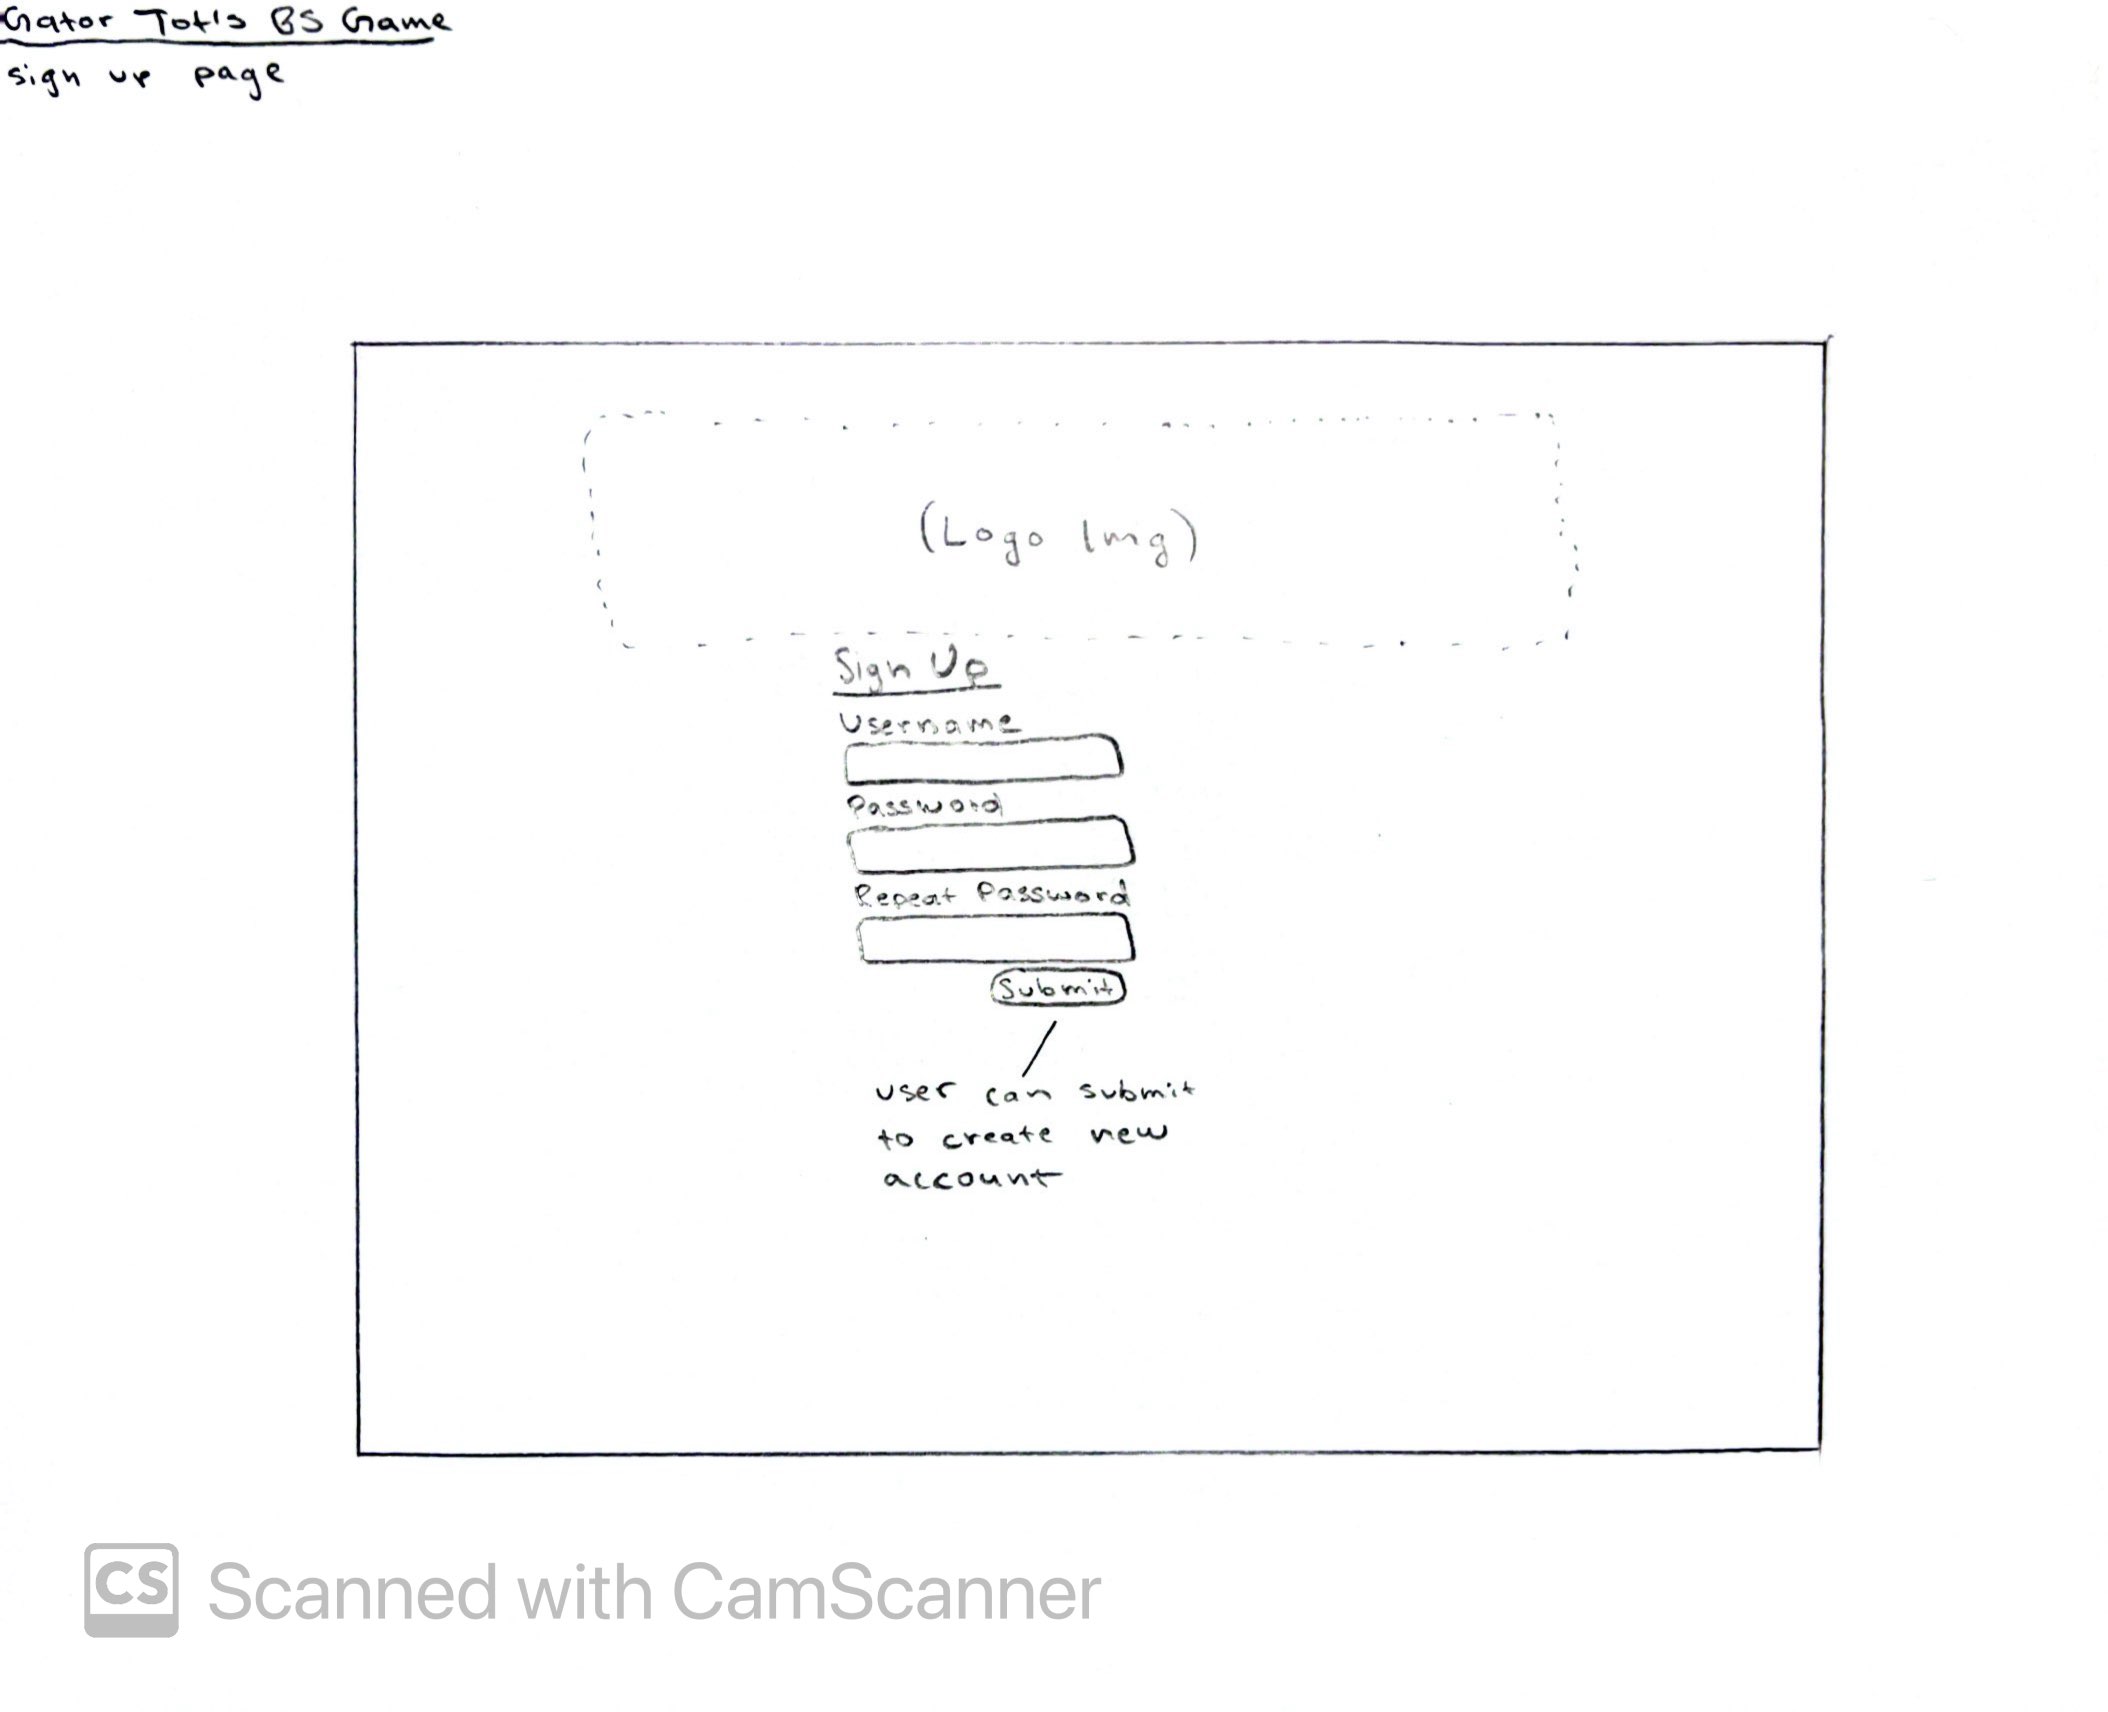 Gator Tot's BS Game
sign up page
(Logo Img)
Sign Up
Username
Password
Repeat Password
Submit
user can submit
to create new
account
CS Scanned with CamScanner